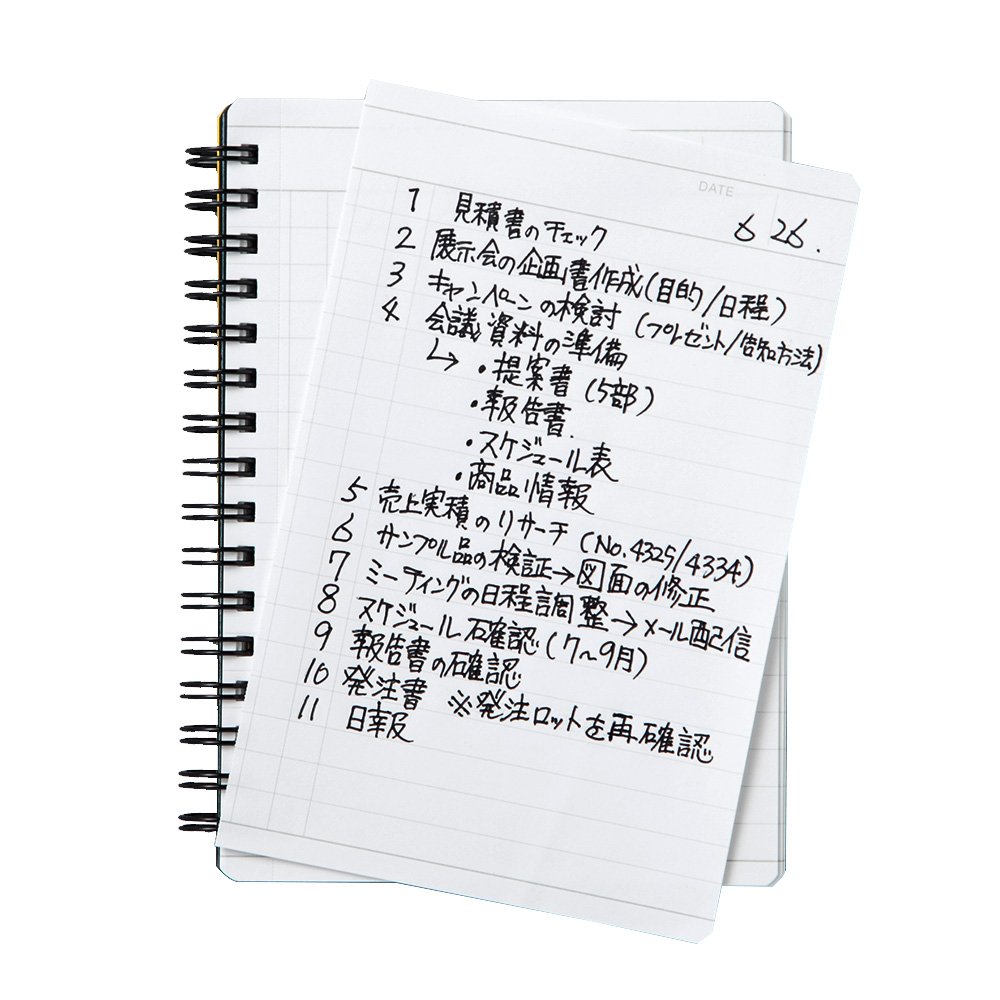 DATE
6 26.
1 見積書のチェック
2 展示会の企画書作成(目的/日程)
3 キャンペーンの検討(プレゼント/告知方法)
4 会議資料の準備
↳ ・提案書(5部)
・報告書.
・スケジュール表
・商品情報
5 売上実積のリサーチ(No.4325/4334)
6 サンプル品の検証→図面の修正
7 ミーティングの日程調整→メール配信
8 スケジュール確認(7〜9月)
9 報告書の確認
10 発注書 ※発注ロットを再確認
11 日報